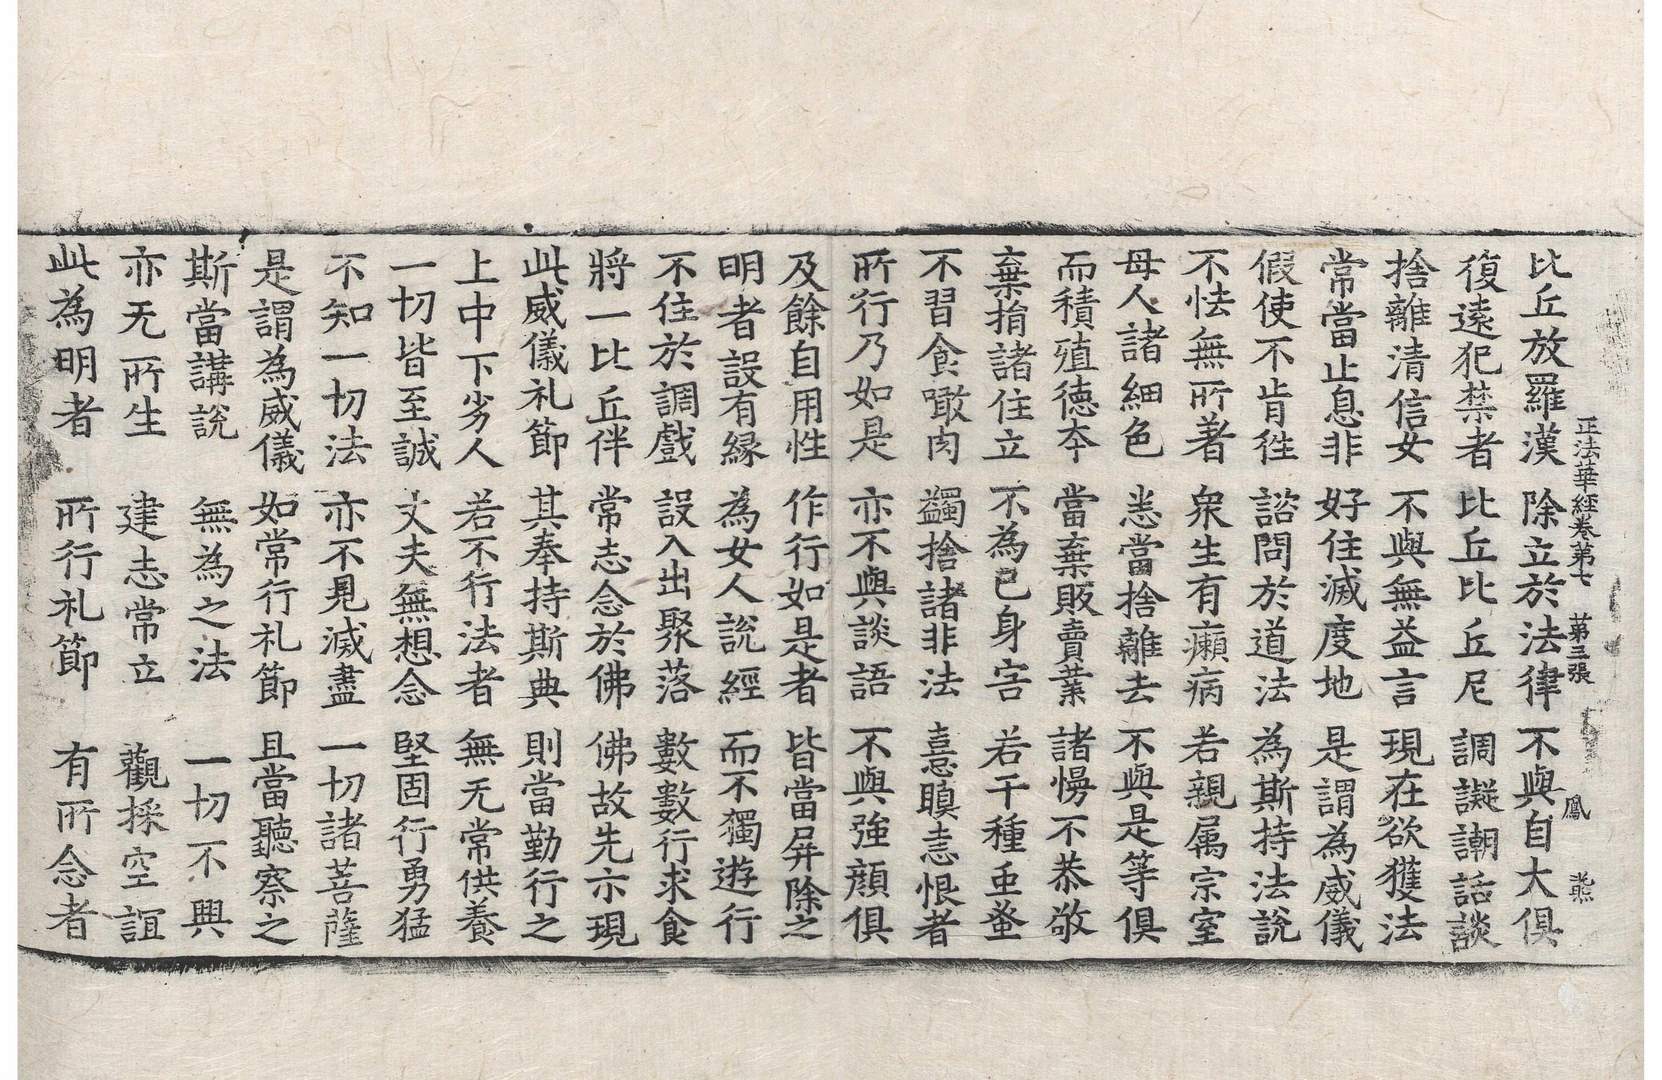 正法華經卷第七 第三張 鳳
比丘放羅漢 除立於法律 不與自大俱
復遠犯禁者 比丘比丘尼 調譺謿話談
捨離清信女 不與無益言 現在欲獲法
常當止息非 好住滅度地 是謂為威儀
假使不肯徃 諮問於道法 為斯持法說
不怯無所著 衆生有癩病 若親属宗室
母人諸細色 恙當捨離去 不與是等俱
而積殖德夲 當棄販賣業 諸慢不恭敬
棄捐諸住立 不為己身害 若干種䖝蚤
不習食噉肉 蠲捨諸非法 憙瞋恚恨者
所行乃如是 亦不與談語 不與強顔俱
及餘自用性 作行如是者 皆當屏除之
明者設有縁 為女人說經 而不獨遊行
不住於調戲 設入出聚落 數數行求食
將一比丘伴 常志念於佛 佛故先示現
此威儀礼節 其奉持斯典 則當勤行之
上中下劣人 若不行法者 無无常供養
一切皆至誠 丈夫無想念 堅固行勇猛
不知一切法 亦不見滅盡 一切諸菩薩
是謂為威儀 如常行礼節 且當聽察之
斯當講說 無為之法 一切不興
亦无所生 建志常立 觀採空誼
此為明者 所行礼節 有所念者